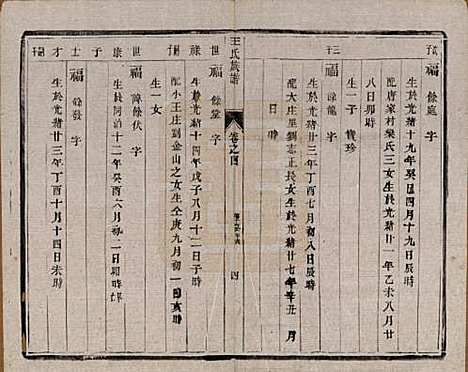 福 餘庭 字
生於光緒十九年癸巳四月十九日辰時
配唐家村梁氏三女生於光緒廿一年乙未八月廿
八日卯時
生一子 寶珍
三 福 餘龍 字
生於光緒廿三年丁酉七月初八日辰時
配大庄劉志正長女生於光緒廿七年辛丑 月
日 時
王氏族譜
卷之四
四
世 福 餘堂 字
生於光緒十四年戊子八月十二日子時
配小王庄劉金山之女生仝庚九月初一日亥時
生一女
世 福 餘伏 字
生於同治十二年癸酉六月初二日卯時
士 福 餘發 字
生於光緒廿三年丁酉十月十四日未時